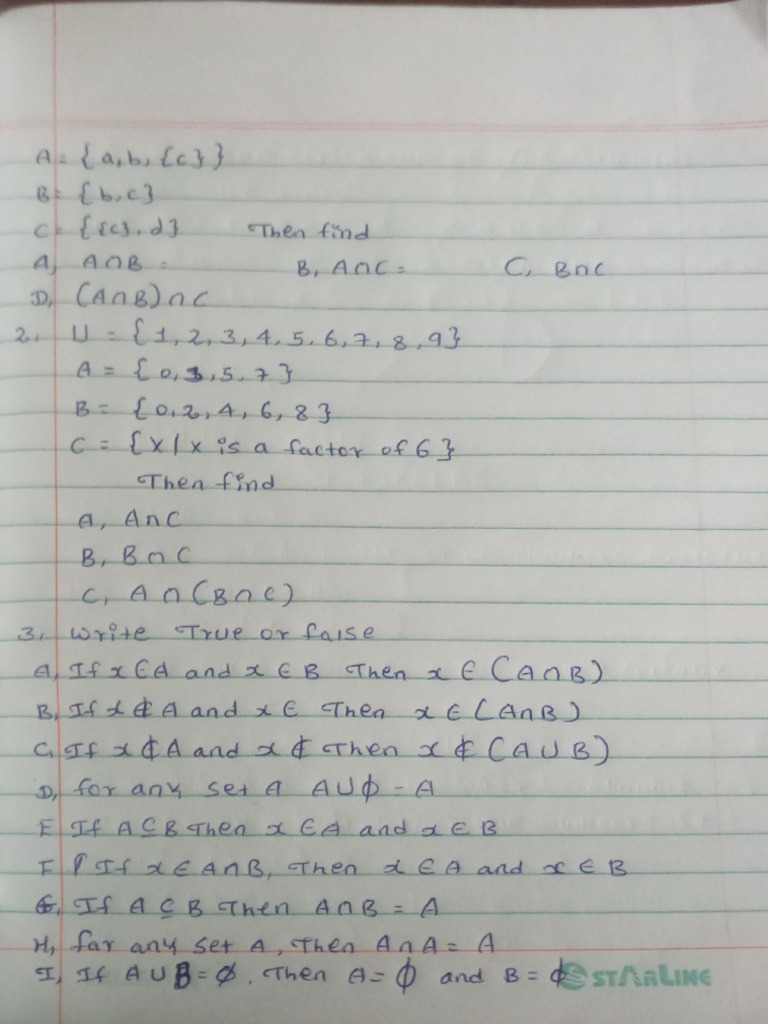 A = {a,b,{c}}
B = {b,c}
C = {{c},d} Then find
A, A∩B = B, A∩C = C, B∩C
D, (A∩B)∩C
2, U = {1,2,3,4,5,6,7,8,9}
A = {0,3,5,7}
B = {0,2,4,6,8}
C = {x/x is a factor of 6}
Then find
A, A∩C
B, B∩C
C, A∩(B∩C)
3, Write True or false
A, If x∈A and x∈B Then x∈(A∩B)
B, If x∉A and x∈ Then x∈(A∩B)
C, If x∉A and x∉ Then x∉(A∪B)
D, for any set A A∪ϕ - A
E If A⊆B Then x∈A and x∈B
F If x∈A∩B, Then x∈A and x∈B
G, If A⊆B Then A∩B = A
H, far any set A, Then A∩A = A
I, If A∪B = ϕ. Then A = ϕ and B = ϕ STARLINE